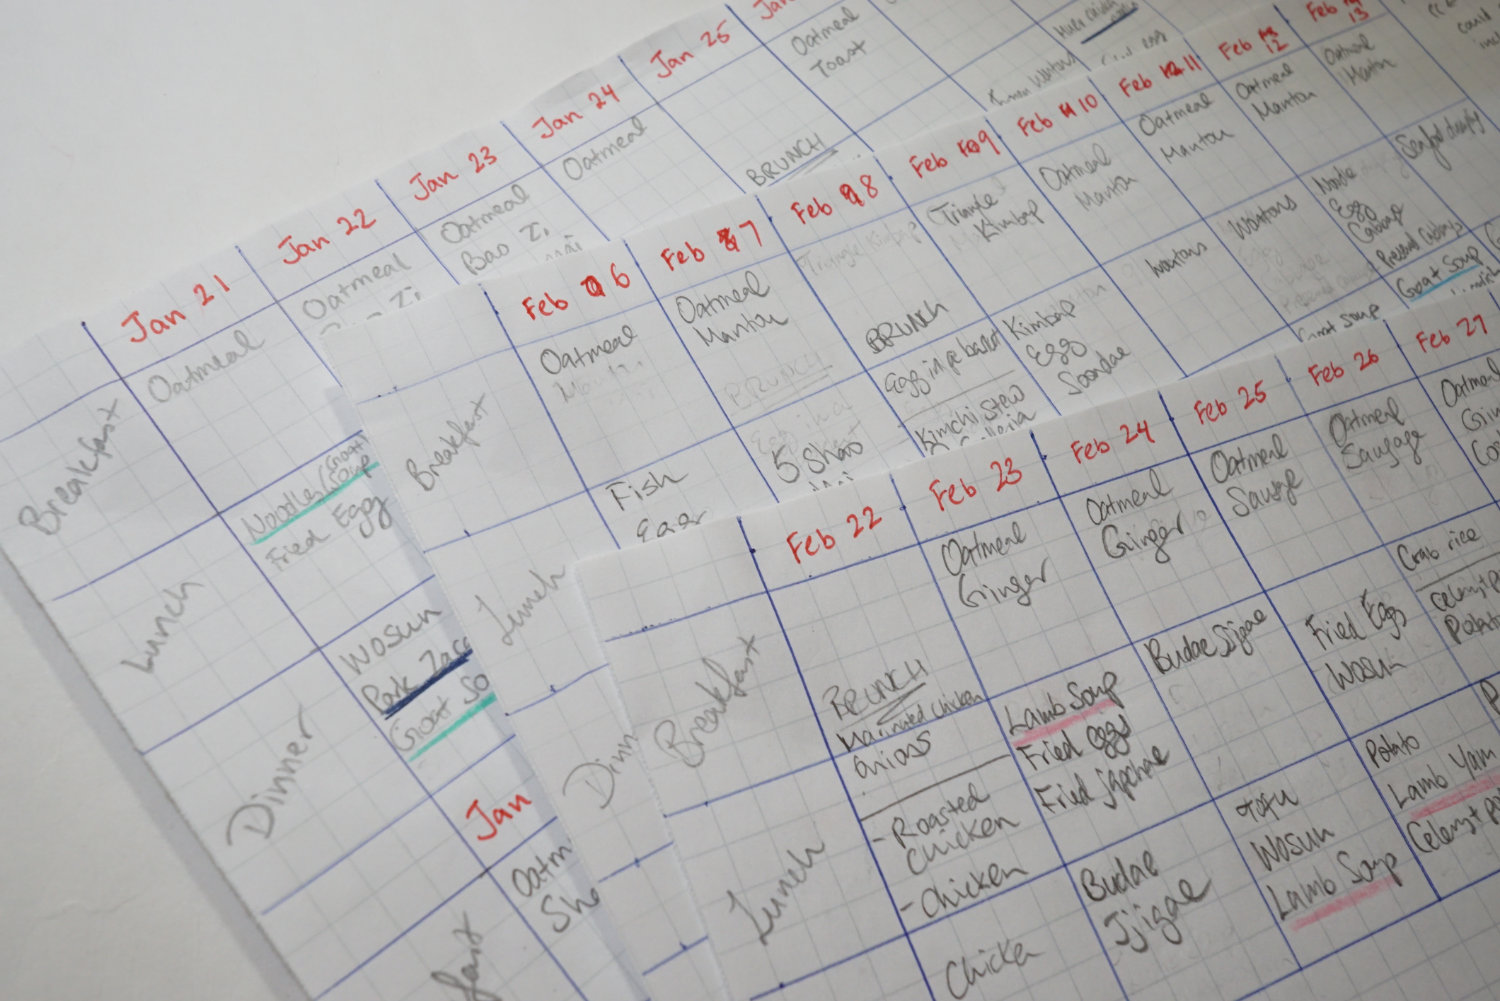 Jan 21
Jan 22
Jan 23
Jan 24
Jan 25
Breakfast
Oatmeal
Oatmeal
Oatmeal
Bao Zi
Oatmeal
BRUNCH
Oatmeal
Toast
Lunch
Noodles/Goat
Soup
Fried Egg
Dinner
Wosun
Goat So
Jan
Oatm
Sho
fast
Feb 6
Feb 7
Feb 8
Feb 9
Feb 10
Feb 11
Feb 12
Feb 13
Breakfast
Oatmeal
Oatmeal
Mantou
BRUNCH
Triangle
Kimbap
Oatmeal
Mantou
Oatmeal
Mantou
Oatmeal
Mantou
Oatmeal
Mantou
Lunch
Fish
BRUNCH
5 Shao
Mai
Kimchi Stew
Kimbap
Egg
Soondae
Wontons
Wontons
Noodle
Egg
Cabbage
Goat Soup
Goat Soup
Dinn
Feb 22
Feb 23
Feb 24
Feb 25
Feb 26
Feb 27
Breakfast
BRUNCH
Marinated chicken
onions
Oatmeal
Ginger
Oatmeal
Ginger
Oatmeal
Sausage
Oatmeal
Sausage
Oatmeal
Lunch
- Roasted
Chicken
- Chicken
Lamb Soup
Fried eggs
Fried jigachae
Budae Jjigae
Fried Egg
Wosun
Crab rice
Celery + P
Potato
Chicken
Budae
Jjigae
Tofu
Wosun
Lamb Soup
Potato
Lamb Yam
Celery + po